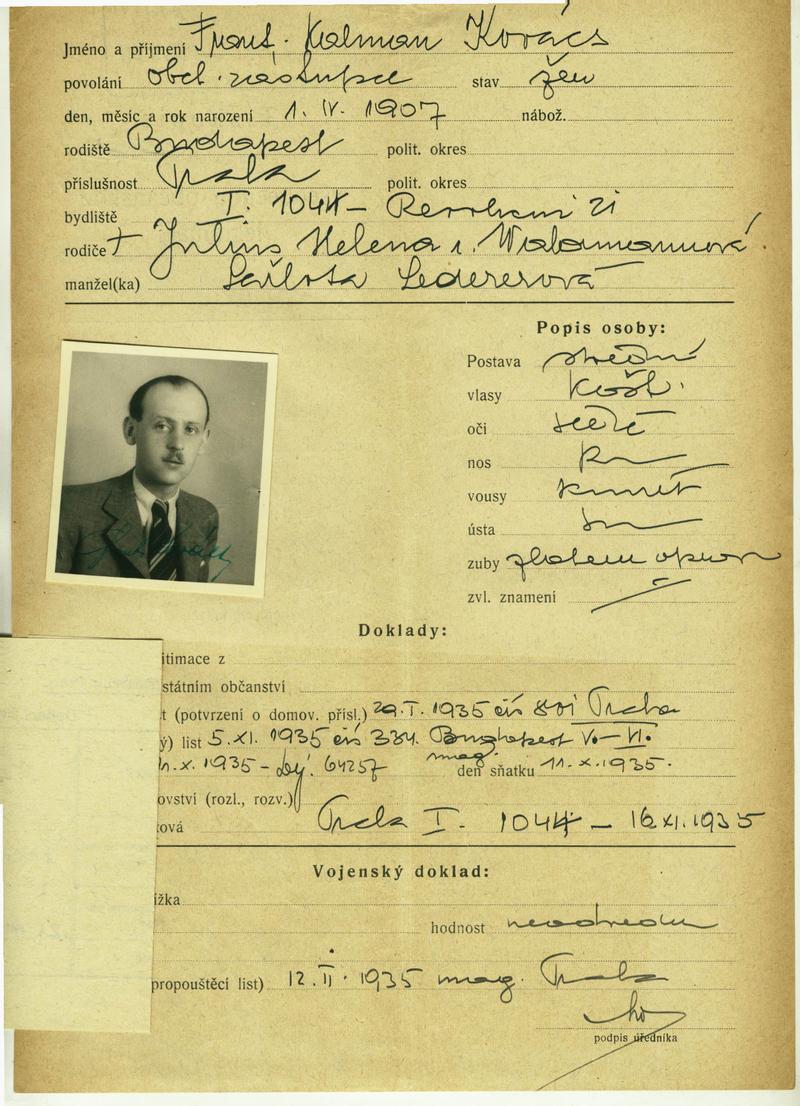 Jméno a příjmení Frant. Kalman Kovács
povolání obch. zástupce stav žen
den, měsíc a rok narození 1. IV. 1907 nábož.
rodiště Budapest polit. okres
příslušnost Praha polit. okres
bydliště I. 1044 - Revoluční 21
rodiče † Julius Helena r.
manžel(ka) Ledererová
Popis osoby:
Postava střední
vlasy kašt.
oči šedé
nos
vousy knírek
ústa
zuby zlatem
zvl. znamení
Doklady:
itimace z
státním občanství
t (potvrzení o domov. přísl.) 29. I. 1935 čís 801 Praha
ý) list 5. XI. 1935 čís 334. Budapest V. - VI.
X. 1935 - 64257 mag. den sňatku 11. X. 1935.
ovství (rozl., rozv.)
ková Praha I. 1044 - 16 XI. 1935
Vojenský doklad:
ížka
hodnost neodveden
propouštěcí list) 12. II. 1935 mag. Praha
podpis úředníka